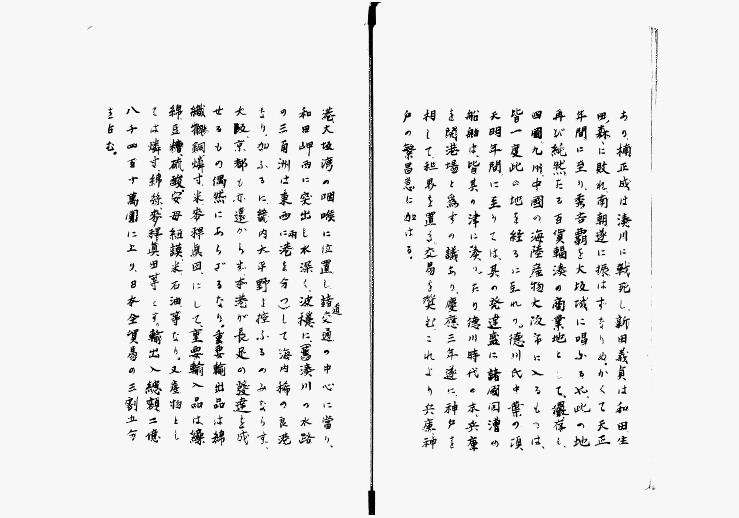 あり、楠正成は湊川に戦死し、新田義貞は和田生
田森に敗れ、南朝遂に振はずなりぬ。かくて天正
年間に至り、秀吉覇を大坂城に唱ふるや此の地
再び純然たる百貨輻湊の商業地として、
四國九州中國の海陸産物大阪市に入るもつは、
皆一度此の地を経るに至れり。徳川氏中葉の頃
天明年間に至りては、其の発達盛に諸國回漕の
船舶は、皆其の津に湊つたり徳川時代の末兵庫
を開港場と為すの議あり、慶應三年遂に神戸を
相して、租界を置き、交易を奨むこれより兵庫神
戸の繁昌急に加はる。
港大坂湾の咽喉に位置し、諸交通の中心に當り、
和田岬西に突出し水深く、波穏に、舊湊川の水路
の三角洲は東西に両港を分つして海内稀の良港
なり、加ふるに畿内大平野を控ふるのみならず、
大阪、京都も亦遠からず、本港が長足の發達を成
せるもの偶然にあらざるなり。重要輸出品は綿
織物銅燐寸、米麥稈眞田、にして、重要輸入品は繰
綿豆糟硫酸安母紐謨米石油等なり。又産物とし
ては燐寸綿絲麥稈眞田等とす。輸出入總額二億
八千四百十萬圓に上り、日本全貿易の三割五分
を占む。